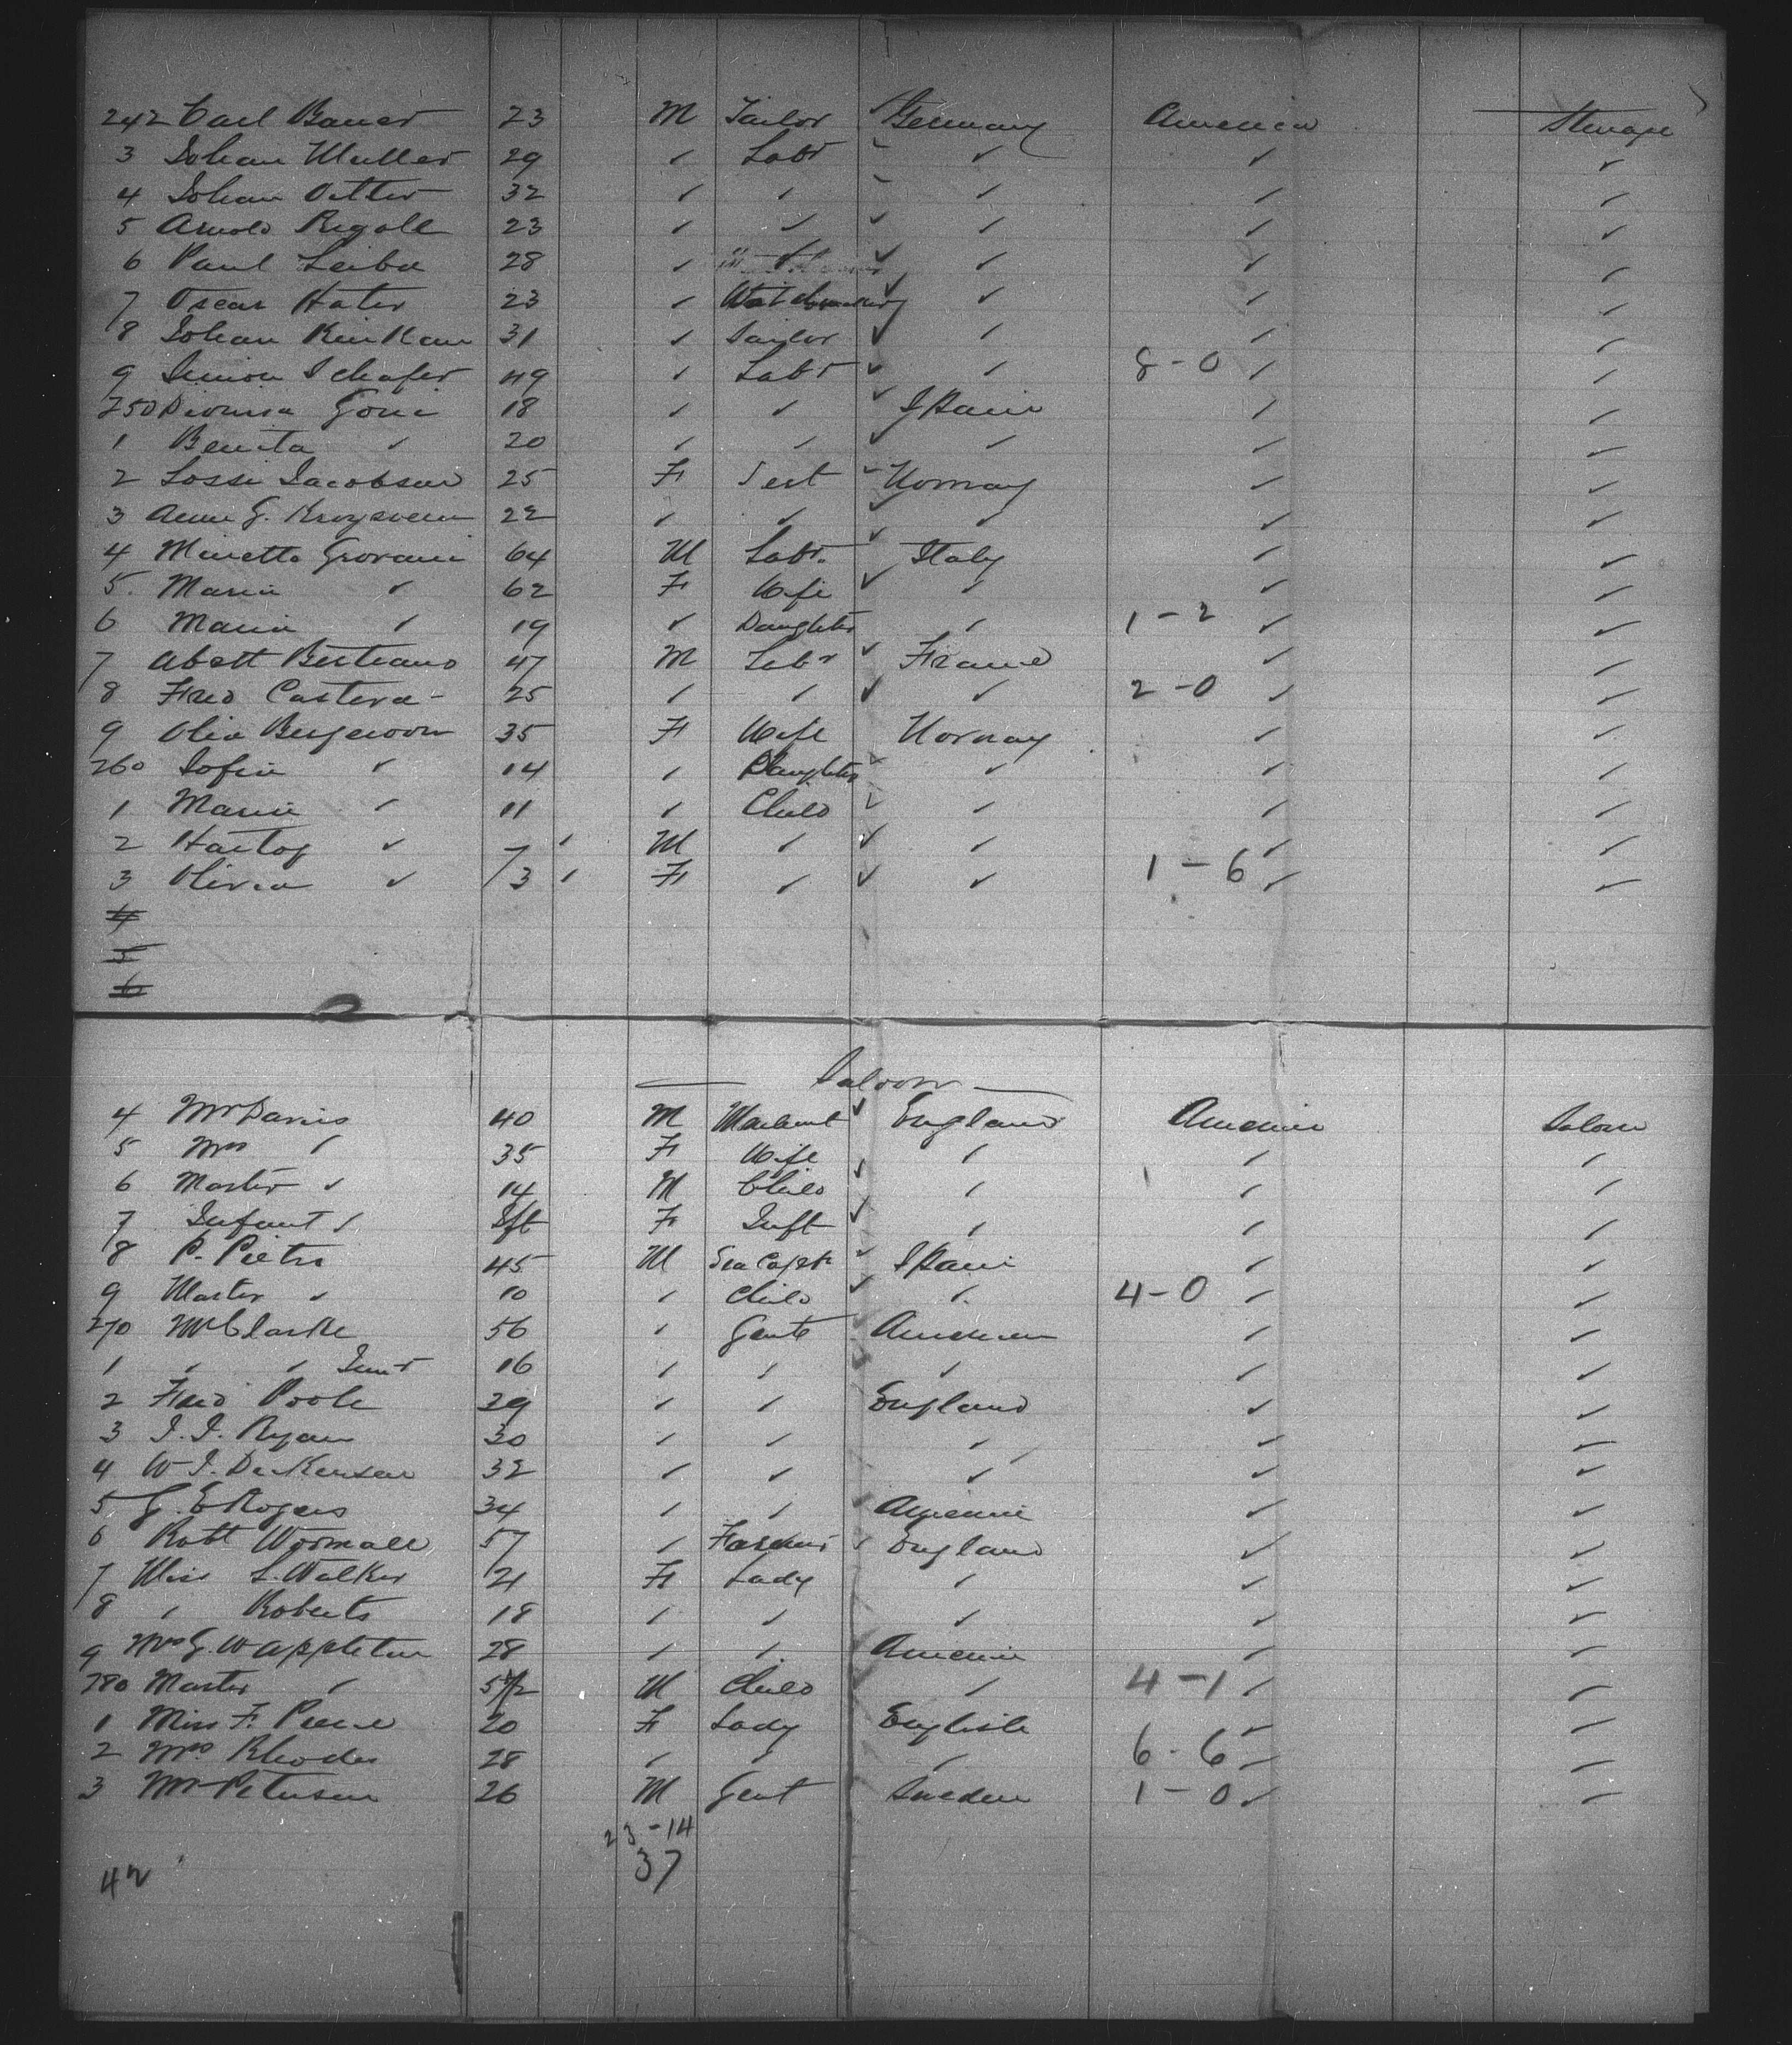 242 Carl Bauer 23 M Tailor Germany America Steerage
3 Johan Muller 29 ✓ Labr ✓ ✓ ✓ ✓
4 Johan Vetter 32 ✓ ✓ ✓ ✓ ✓ ✓
5 Arnold Rigoll 23 ✓ ✓ ✓ ✓ ✓ ✓
6 Paul Leiba 28 ✓ ✓ ✓ ✓ ✓
7 Oscar Hater 23 ✓ Watchmaker ✓ ✓ ✓ ✓
8 Johan 31 ✓ Tailor ✓ ✓ ✓ ✓
9 Simon Schafer 49 ✓ Labr ✓ ✓ 8-0 ✓ ✓
250 Dionisa Goni 18 ✓ ✓ ✓ Spain ✓ ✓
1 Benita ✓ 20 ✓ ✓ ✓ ✓ ✓ ✓
2 Lossi Jacobsen 25 F Sert ✓ Norway ✓ ✓
3 Anne G. 22 ✓ ✓ ✓ ✓ ✓ ✓
4 Minetta Giovani 64 M Labr. ✓ Italy ✓ ✓
5. Maria ✓ 62 F Wife ✓ ✓ ✓ ✓
6 Maria ✓ 19 ✓ Daughter ✓ 1-2 ✓ ✓
7 Abett Bertrano 47 M Labr ✓ France ✓ ✓
8 Fred Castera 25 ✓ ✓ ✓ ✓ 2-0 ✓ ✓
9 Olia 35 F Wife Norway ✓ ✓
260 Sofia ✓ 14 ✓ Daughter ✓ ✓ ✓ ✓
1 Marie ✓ 11 ✓ Child ✓ ✓ ✓ ✓
2 Hartog ✓ 7 ✓ M ✓ ✓ ✓ ✓ ✓
3 Olivia ✓ 3 ✓ F ✓ ✓ ✓ 1-6 ✓ ✓
4
5
6
Saloon
4 Mr Davis 40 M Merchant ✓ England America Saloon
5 Mrs ✓ 35 F Wife ✓ ✓ ✓ ✓
6 Master ✓ 14 M Child ✓ ✓ ✓ ✓
7 Infant ✓ Ift F Inft ✓ ✓ ✓ ✓
8 P. Pietri 45 M Sea Captn ✓ Spain ✓ ✓
9 Master ✓ 10 ✓ Child ✓ ✓ 4-0 ✓ ✓
270 Mr Clarke 56 ✓ Gent ✓ American ✓ ✓
1 ✓ ✓ Junr 16 ✓ ✓ ✓ ✓ ✓
2 Fred Poole 29 ✓ ✓ England ✓ ✓
3 J. J. Ryan 30 ✓ ✓ ✓ ✓ ✓
4 W J. Dickenson 32 ✓ ✓ ✓ ✓ ✓
5 G. E Rogers 34 ✓ ✓ ✓ America ✓ ✓
6 Robt Wormall 57 ✓ Farmer ✓ England ✓ ✓
7 Miss L. Walker 21 F Lady ✓ ✓ ✓
8 ✓ Roberts 18 ✓ ✓ ✓ ✓ ✓
9 Mrs G. W Appleton 28 ✓ ✓ America ✓ ✓
280 Master ✓ 5½ M Child ✓ 4-1 ✓ ✓
1 Miss F. 20 F Lady English ✓ ✓
2 Mrs Rhodes 28 ✓ ✓ ✓ 6-6 ✓ ✓
3 Mr Petersen 26 M Gent Sweden 1-0 ✓ ✓
23-14
42 37